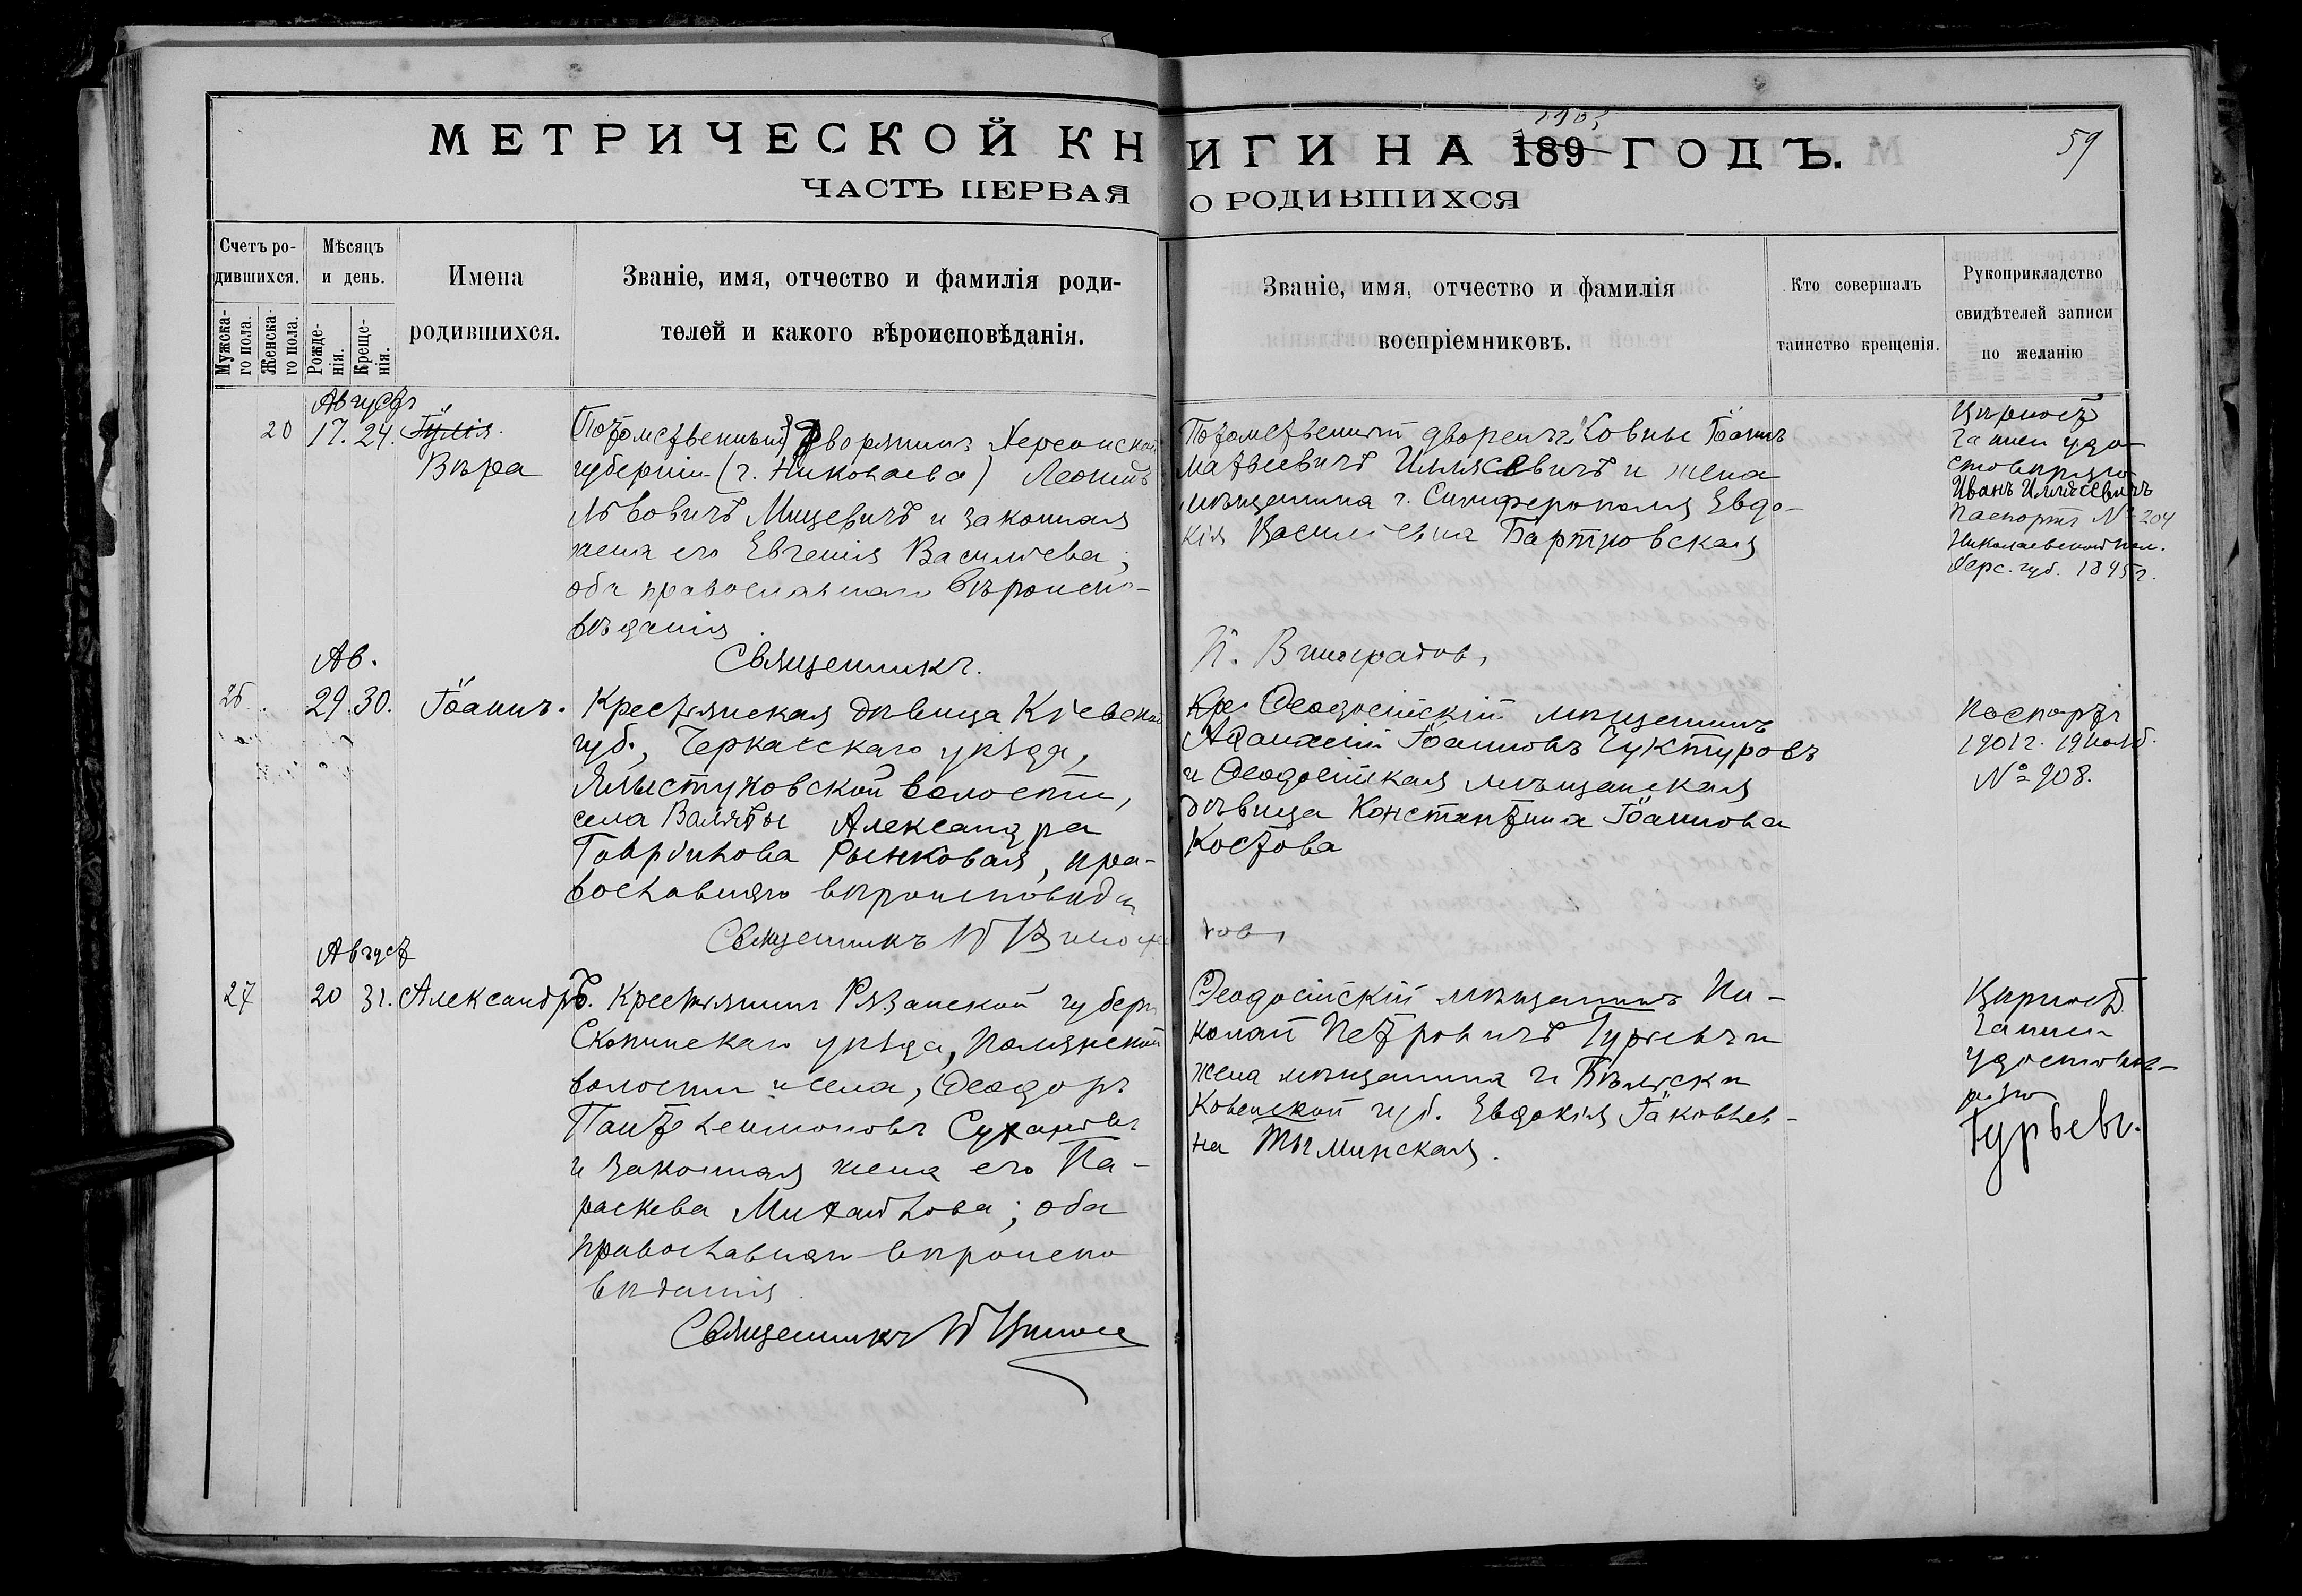 МЕТРИЧЕСКОЙ КНИГИ НА 189 ГОДЪ.
59
ЧАСТЬ ПЕРВАЯ О РОДИВШИХСЯ
Счетъ родившихся.
Мужскаго пола.
Женскаго пола.
Мѣсяцъ и день.
Рожденія.
Крещенія.
Имена
родившихся.
Званіе, имя, отчество и фамилія роди-
телей и какого вѣроисповѣданія.
Званіе, имя, отчество и фамилія
воспріемниковъ.
Кто совершалъ
таинство крещенія.
Рукоприкладство
свидѣтелей записи
по желанію
Августъ
20 17. 24. Юлія.
Вѣра
Потомственный дворянинъ Херсонской
губерніи (г. Николаева) Леонидъ
Львовичъ Мицевичъ и законная
жена его Евгенія Васильева;
оба православнаго вѣроиспо-
вѣданія
Священникъ П. Виноградов,
Потомственный дворенинъ Ковны Іоаннъ
Матвѣевичъ Иллясевичъ и жена
мѣщанина г. Симферополя Евдо-
кія Васильевна Бартновская
запис удо-
стовѣряю
Иванъ Иллясевичъ
Паспортъ № 204
Николаевской
Херс. губ. 1895 г.
Ав.
26. 29. 30. Іоаннъ.
Крестьянская дѣвица Кіевской
губ., Черкасскаго уѣзда,
волости,
села Валявы Александра
Гавріилова Рынковая, пра-
вославнаго вѣроисповѣд
Священникъ П Виноградов,
Ѳеодосійскій мѣщанинъ
Аѳанасій Іоанновъ Чуктуровъ
и Ѳеодосійская мѣщанская
дѣвица Константина Іоаннова
Костова
Паспортъ
1901 г. 19 нояб.
№ 908.
Август
27 20 31. Александръ.
Крестьянинъ Рязанской губерн
Скопинскаго уѣзда, Полянской
волости и села, Ѳеодоръ
Пантелеимоновъ Сухановъ
и законная жена его Па-
раскева Михайлова; оба
православнаго вѣроиспо
вѣданія
Священникъ П
Ѳеодосійскій мѣщанинъ Ни-
колай Петровичъ Гурьевъ и
жена мѣщанина г. Бѣльска
Ковенской губ. Евдокія Іаковлев-
на Тыминская.
запис
удостовѣ-
ряю
Гурьевъ.